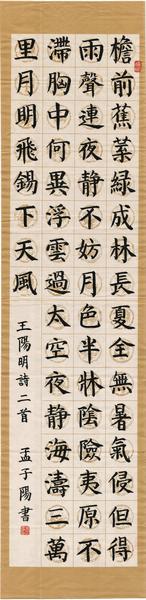 檐前蕉葉綠成林長夏全無暑氣侵但得
雨聲連夜靜不妨月色半牀陰險夷原不
滯胸中何異浮雲過太空夜靜海濤三萬
里月明飛錫下天風
王陽明詩二首 孟子陽書